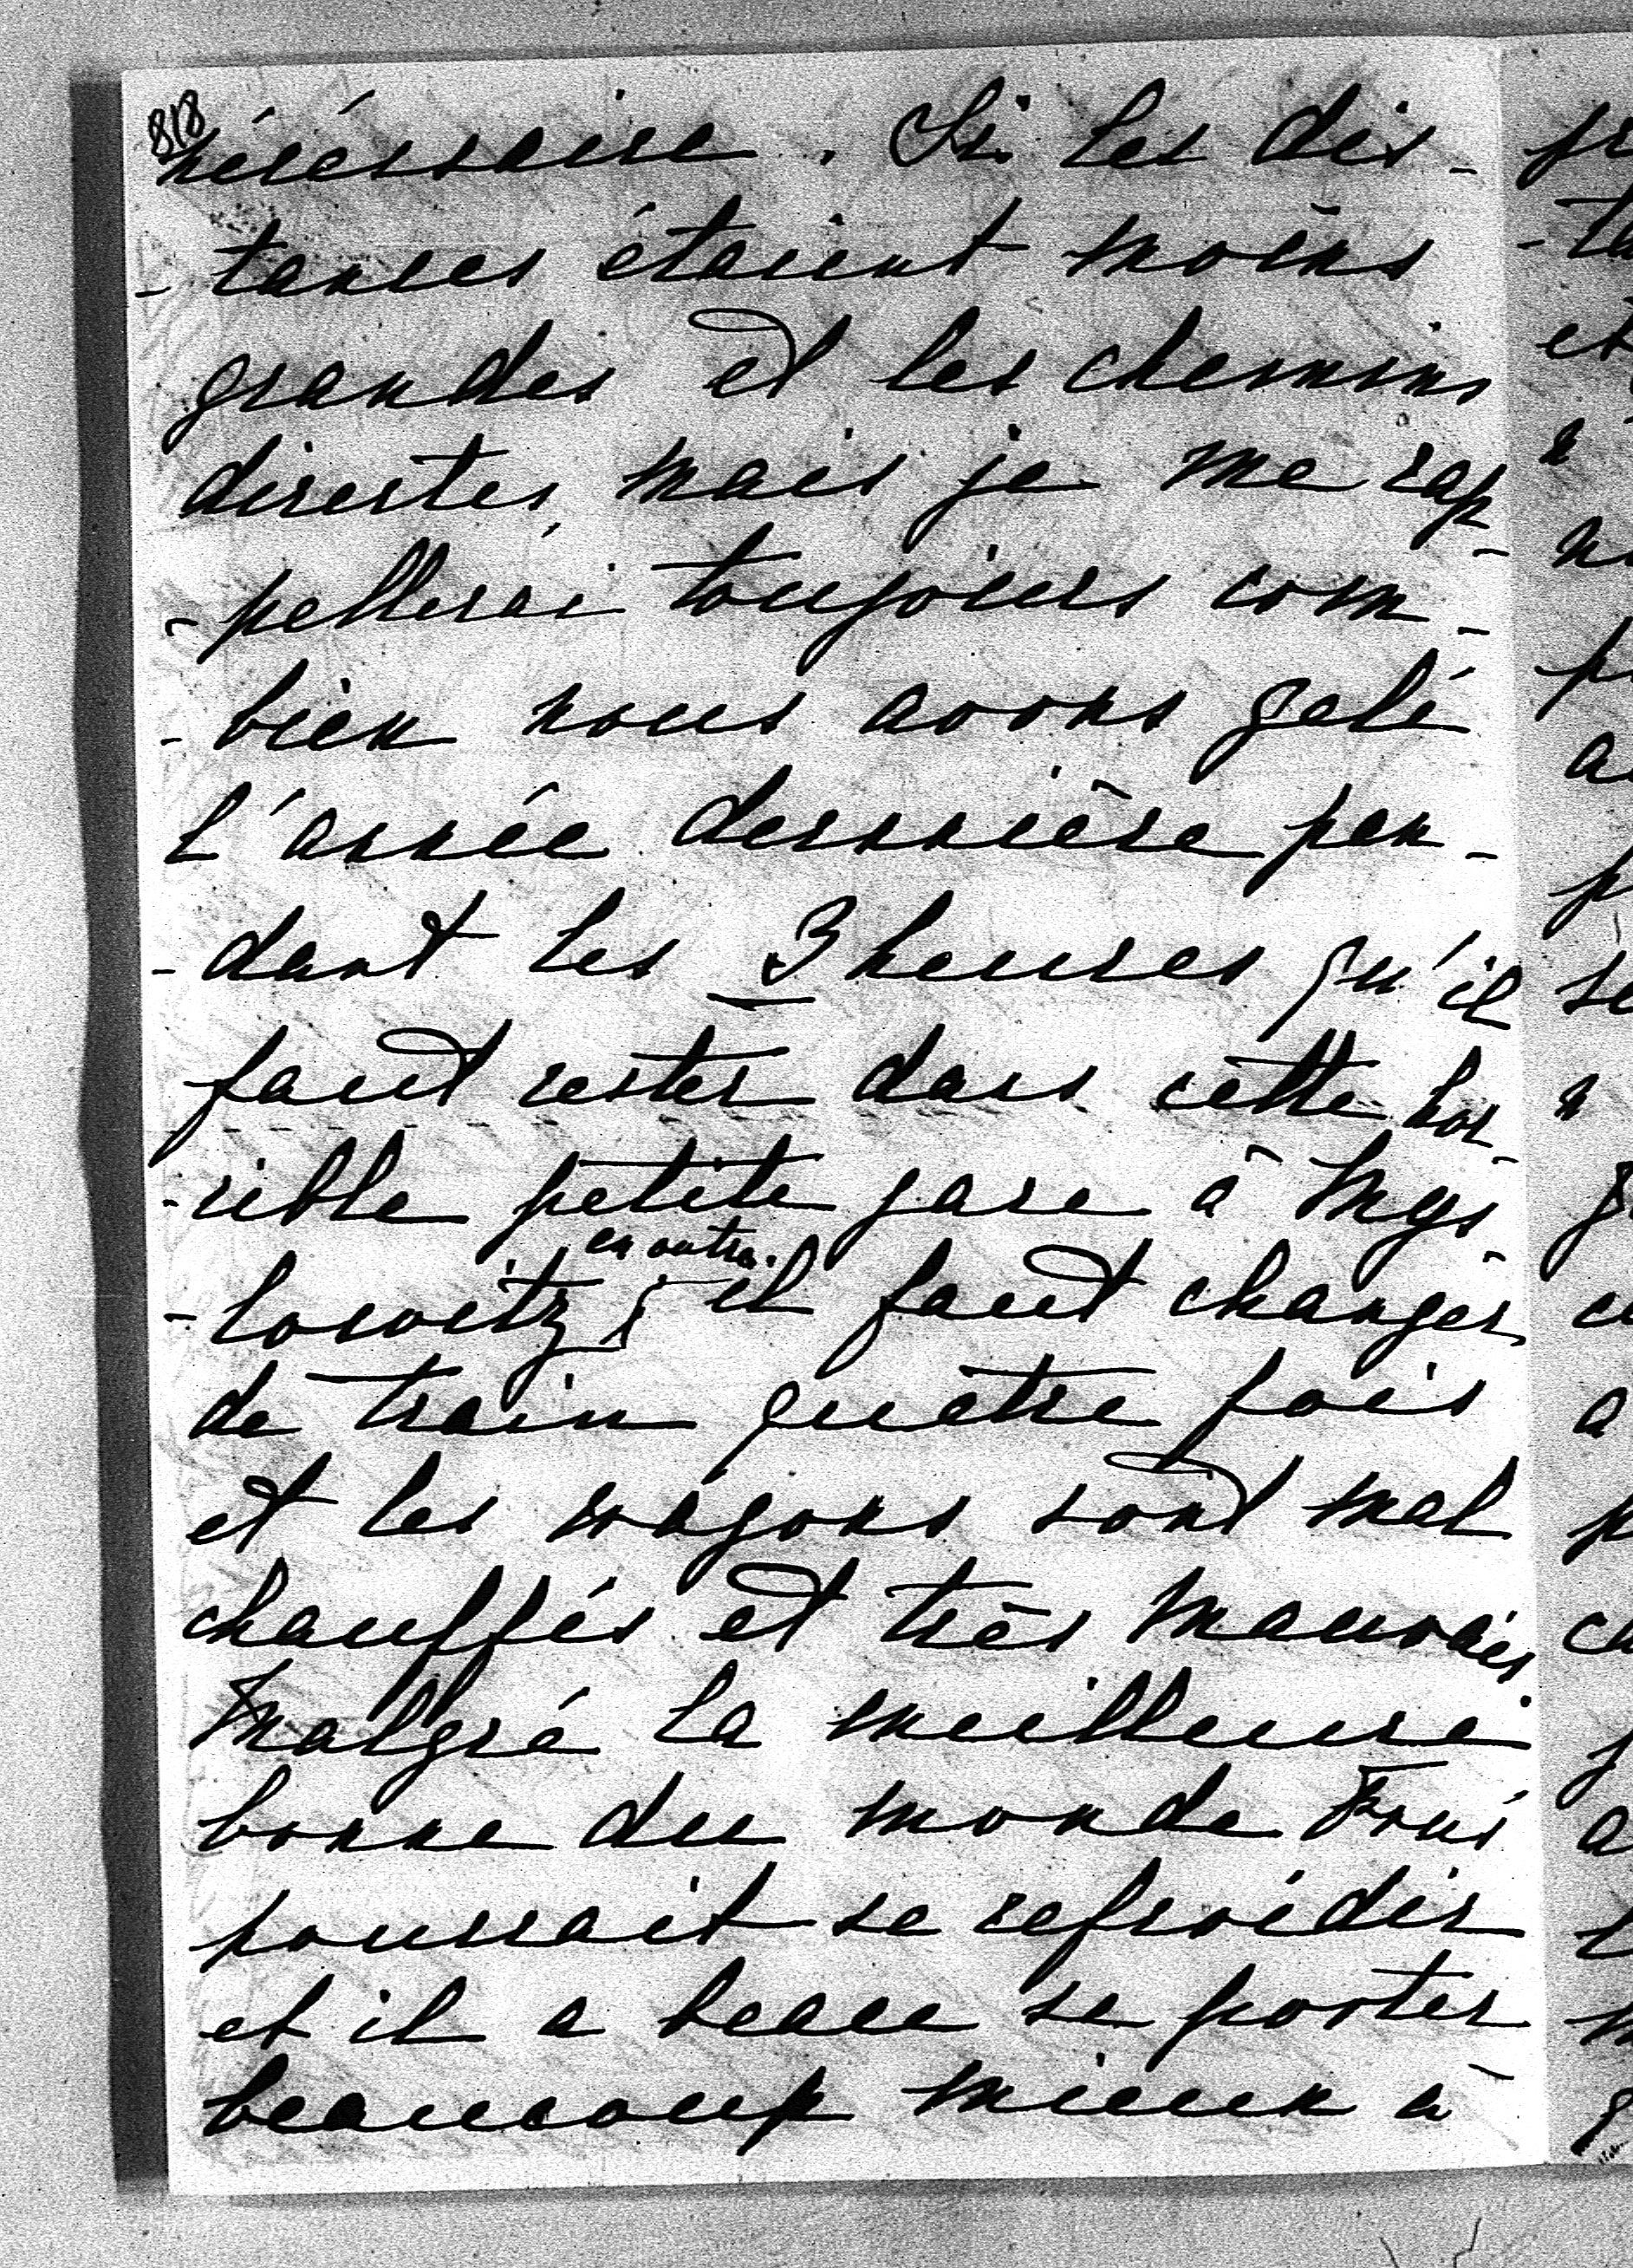 818
nécéssaire. Si les dis-
-tances étaient moins
grandes et les chemins
directes, mais je me rap-
-pellerai toujours com-
-bien nous avons gelé
l'année dernnière pen-
-dant les 3 heures qu'il
faut rester dans cette hor-
-rible petite gare à Mys-
en outre
-lowitz, il faut changer
de train quatre fois
et les wagons sont mal
chauffés et très mauvais.
Malgré la meilleure
bonne du monde
pourrait se refroidir
et il a beau se porter
beaucoup mieux à